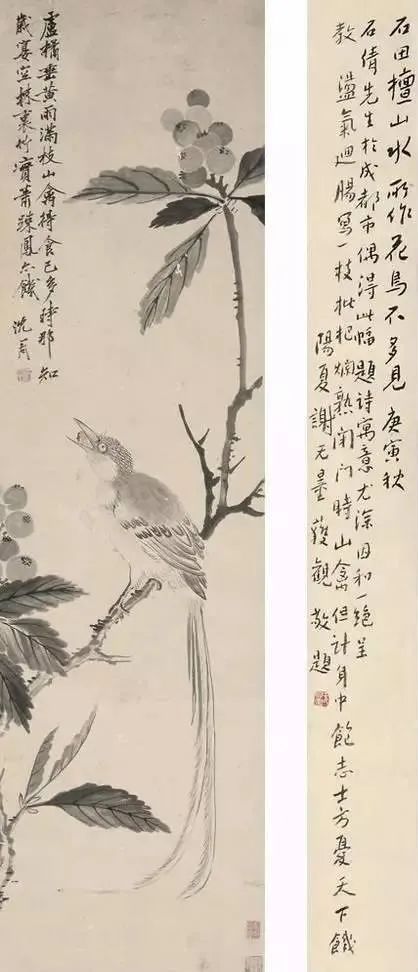 盧橘垂黄雨滿枝山禽得食已多時那知
歲宴空林裏竹實蕭疎鳳亦饑 沈周
石田擅山水所作花鳥不多見庚寅秋
石倩先生於成都市偶得此幅題詩寓意尤深因和一絶呈
教 盪氣迴腸寫一枝枇杷爛熟閉門時山禽但計身中飽志士方憂天下饑
陽夏謝无量獲觀敬題